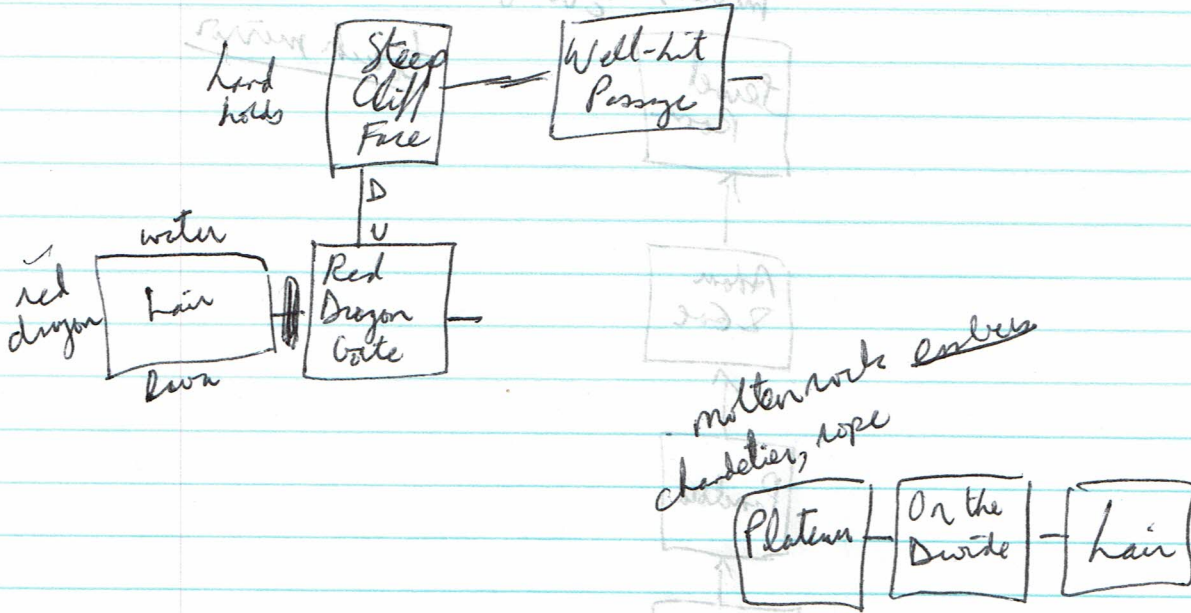 Steep
Cliff
Face
hand
holds
Well-Lit
Passage
D
U
water
red
dragon
Lair
Red
Dragon
Gate
molten rock embers
chandelier, rope
Plateau
On the
Divide
Lair